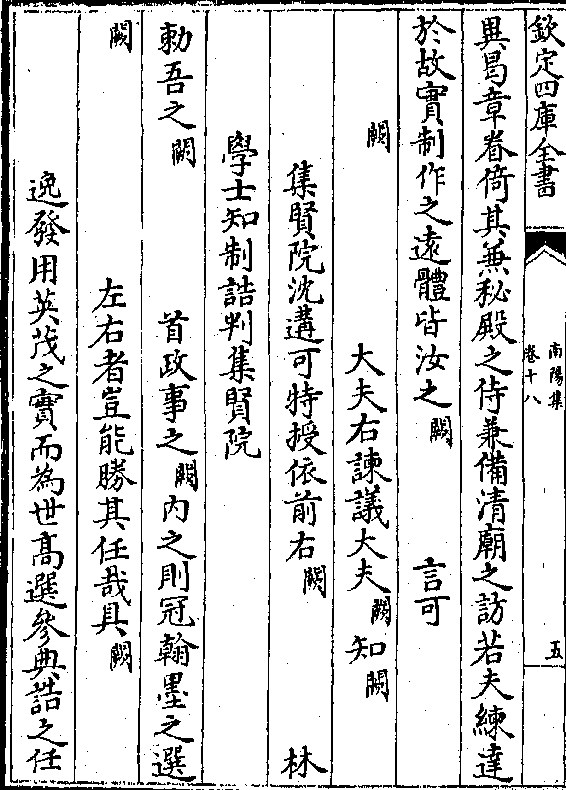 欽定四庫全書
南陽集
卷十八
五
異曷章眷倚其兼秘殿之侍兼備清廟之訪若夫練達
於故實制作之遠體皆汝之闕 言可
闕 大夫右諫議大夫闕知闕
集賢院沈遘可特授依前右闕 林
學士知制誥判集賢院
勅吾之闕 首政事之闕内之則冠翰墨之選
闕 左右者豈能勝其任哉具闕
逸發用英茂之實而為世髙選參典誥之任